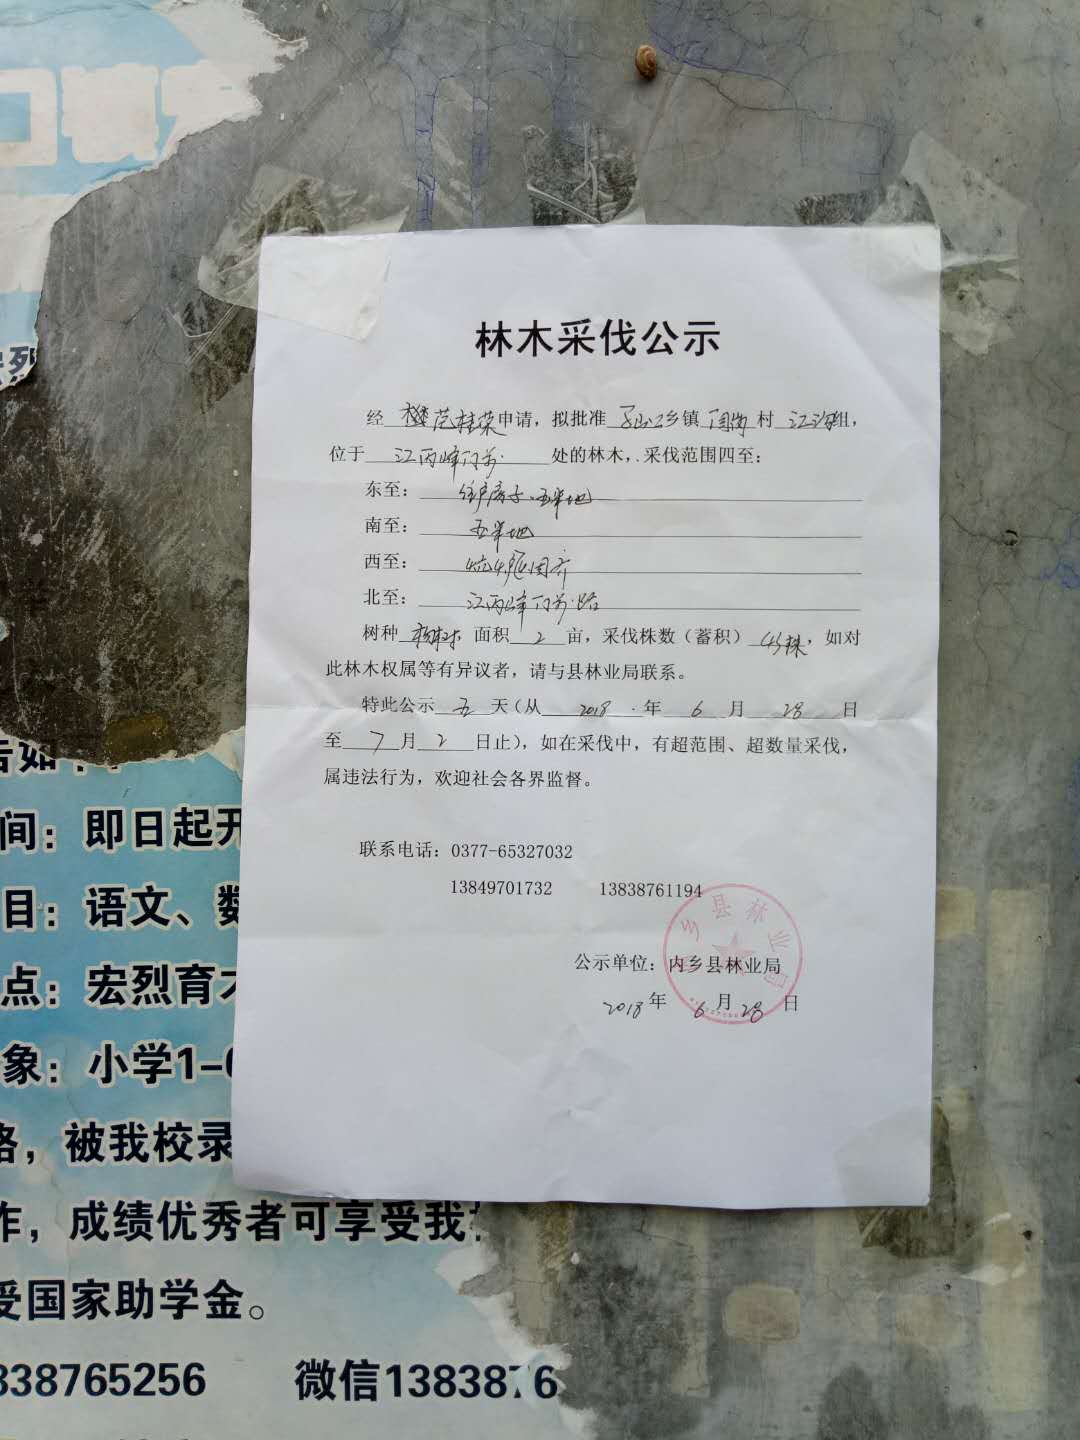 林木采伐公示
经 范桂荣申请，拟批准 乡镇 村 组，
位于 江丙峰门前 处的林木，采伐范围四至：
东至： 住户房子、五半地
南至： 五半地
西至：
北至： 江丙峰门前路
树种 杨树 面积 2 亩，采伐株数（蓄积） 45株，如对
此林木权属等有异议者，请与县林业局联系。
特此公示 五 天（从 2018 年 6 月 28 日
至 7 月 2 日止），如在采伐中，有超范围、超数量采伐，
属违法行为，欢迎社会各界监督。
联系电话：0377-65327032
13849701732 13838761194
公示单位：内乡县林业局
2018 年 6 月 28 日
乡县林业局
告如
间：即日起开
目：语文、数
点：宏烈育才
象：小学1-6
格，被我校录
作，成绩优秀者可享受我
受国家助学金。
838765256 微信1383876